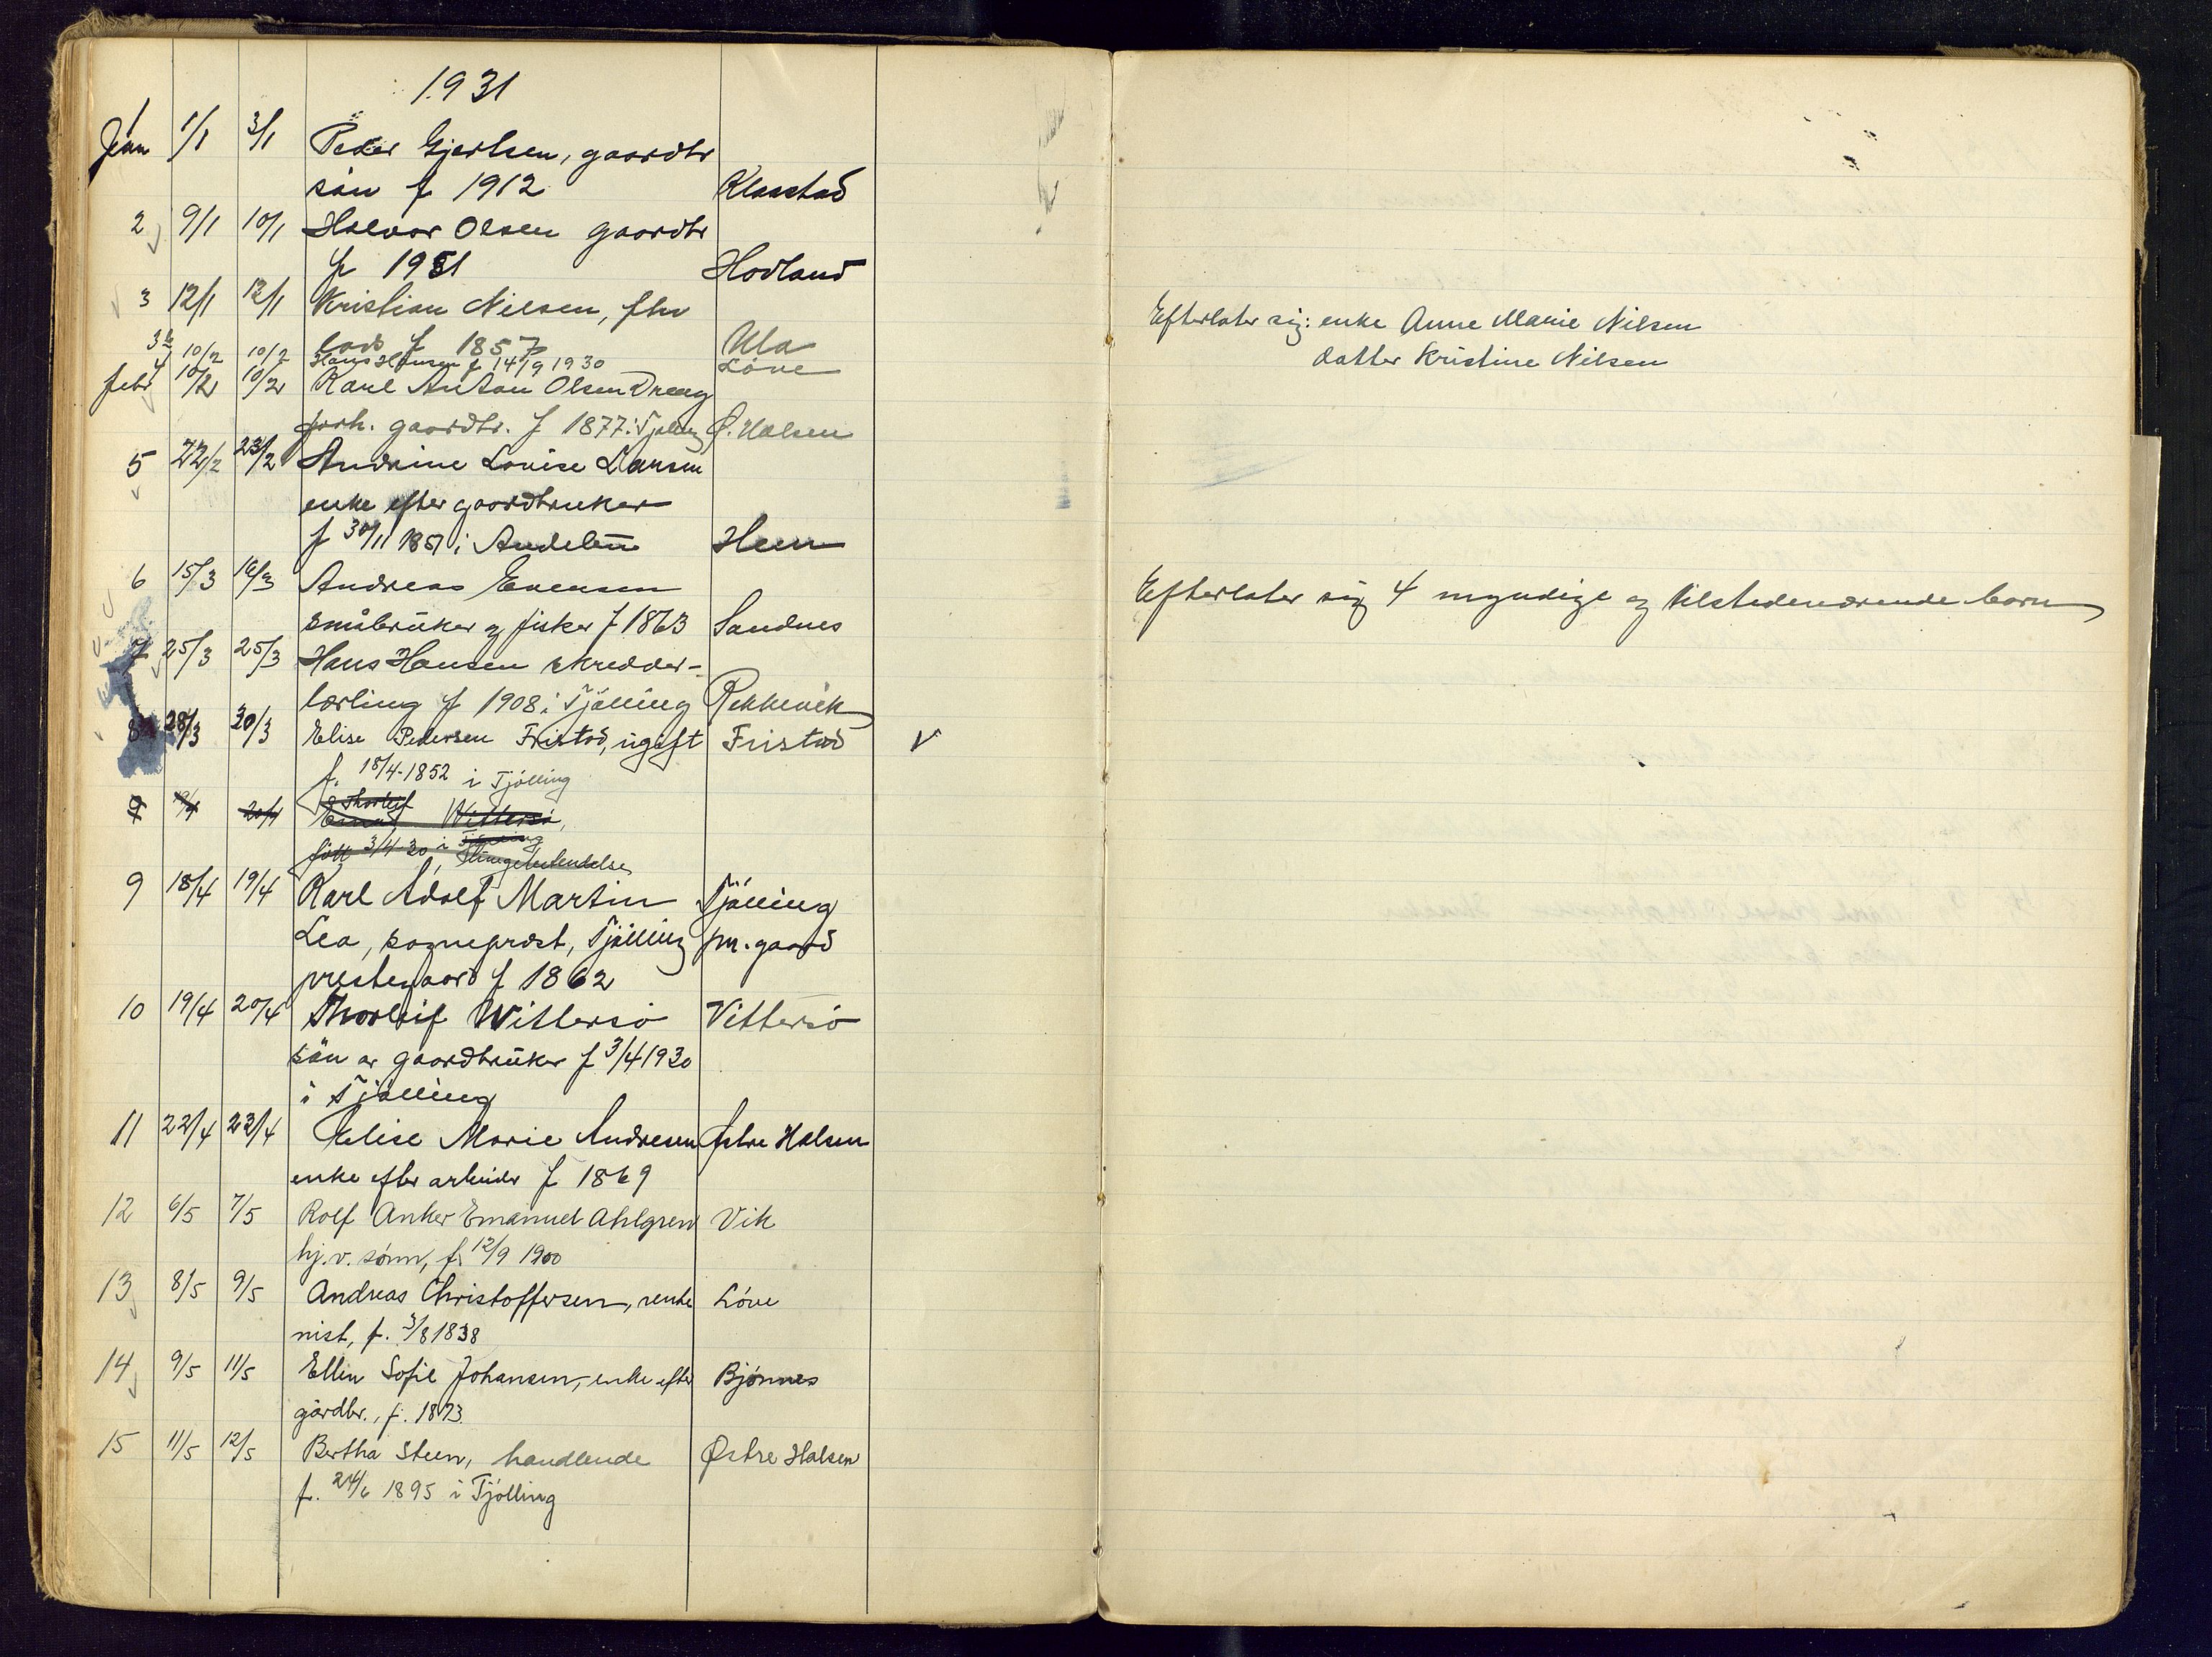 1931
1
Jan 1/1 3/1 Peder Gjertsen, gaardbr
sön f 1912 Klaastad
2 9/1 10/1 Halvor Olsen gaardbr
f 1851 Hovland
3 12/1 12/1 Kristian Nilsen, fhv
lods f 1857 Ula
3b 10/2 10/2 Hans Hansen f 14/9 1930 Löve
4
febr 10/2 10/2 Karl Anton Olsen Dreng
forh. gaardbr. f 1877 i Tjölling Ö. Halsen
5 22/2 23/2 Andrine Louise Larsen
enke efter gaardbruker
f 30/11 1851 i Andebu Hem
6 15/3 16/3 Andreas Evensen
småbruker og fisker f 1863 Sandnes
7 25/3 25/3 Hans Hansen skredder-
lærling f 1908 i Tjölling Rekkevik
8 28/3 30/3 Elise Pedersen Fristad, ugift Fristad V
f. 18/4-1852 i Tjölling
Thorleif
9 19/4 20/4 Wittersö,
født 3/4 30 i Tjölling
Lungebetendelse
9 18/4 19/4 Karl Adolf Martin Tjölling
Lea, sogneprest, Tjölling pr.gaard
prestegaard f 1862
10 19/4 20/4 Thorleif Wittersö Vittersö
sön av gaardbruker f 3/4 1930
i Tjölling
11 22/4 22/4 Elise Marie Andresen Östre Halsen
enke efter arbeider f 1869
12 6/5 7/5 Rolf Anker Emanuel Ahlgren Vik
hj.v. sønn, f. 12/9 1900
13 8/5 9/5 Andreas Christoffersen, rente Löve
nist, f. 3/8 1838
14 9/5 11/5 Ellen Sofie Johansen, enke efter Bjönnes
gårdbr., f. 1873.
15 11/5 12/5 Bertha Steen, handlende Østre Halsen
f. 24/6 1895 i Tjölling
Efterlater sig: enke Anne Marie Nilsen
datter Kristine Nilsen
Efterlater sig 4 myndige og tilstedeværende barn